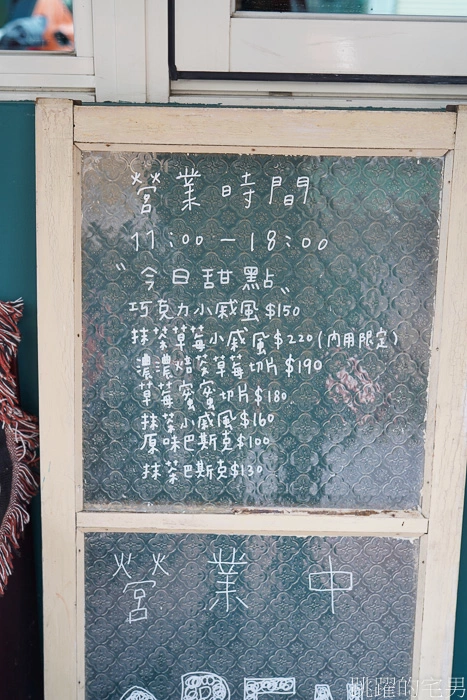 營業時間
11:00-18:00
"今日甜點"
巧克力小戚風$150
抹茶草莓小戚風$220(內用限定)
濃濃焙茶草莓切片$190
草莓蜜蜜切片$180
抹茶小戚風$160
原味巴斯克$100
抹茶巴斯克$130
營業中
OPEN
跳躍的宅男